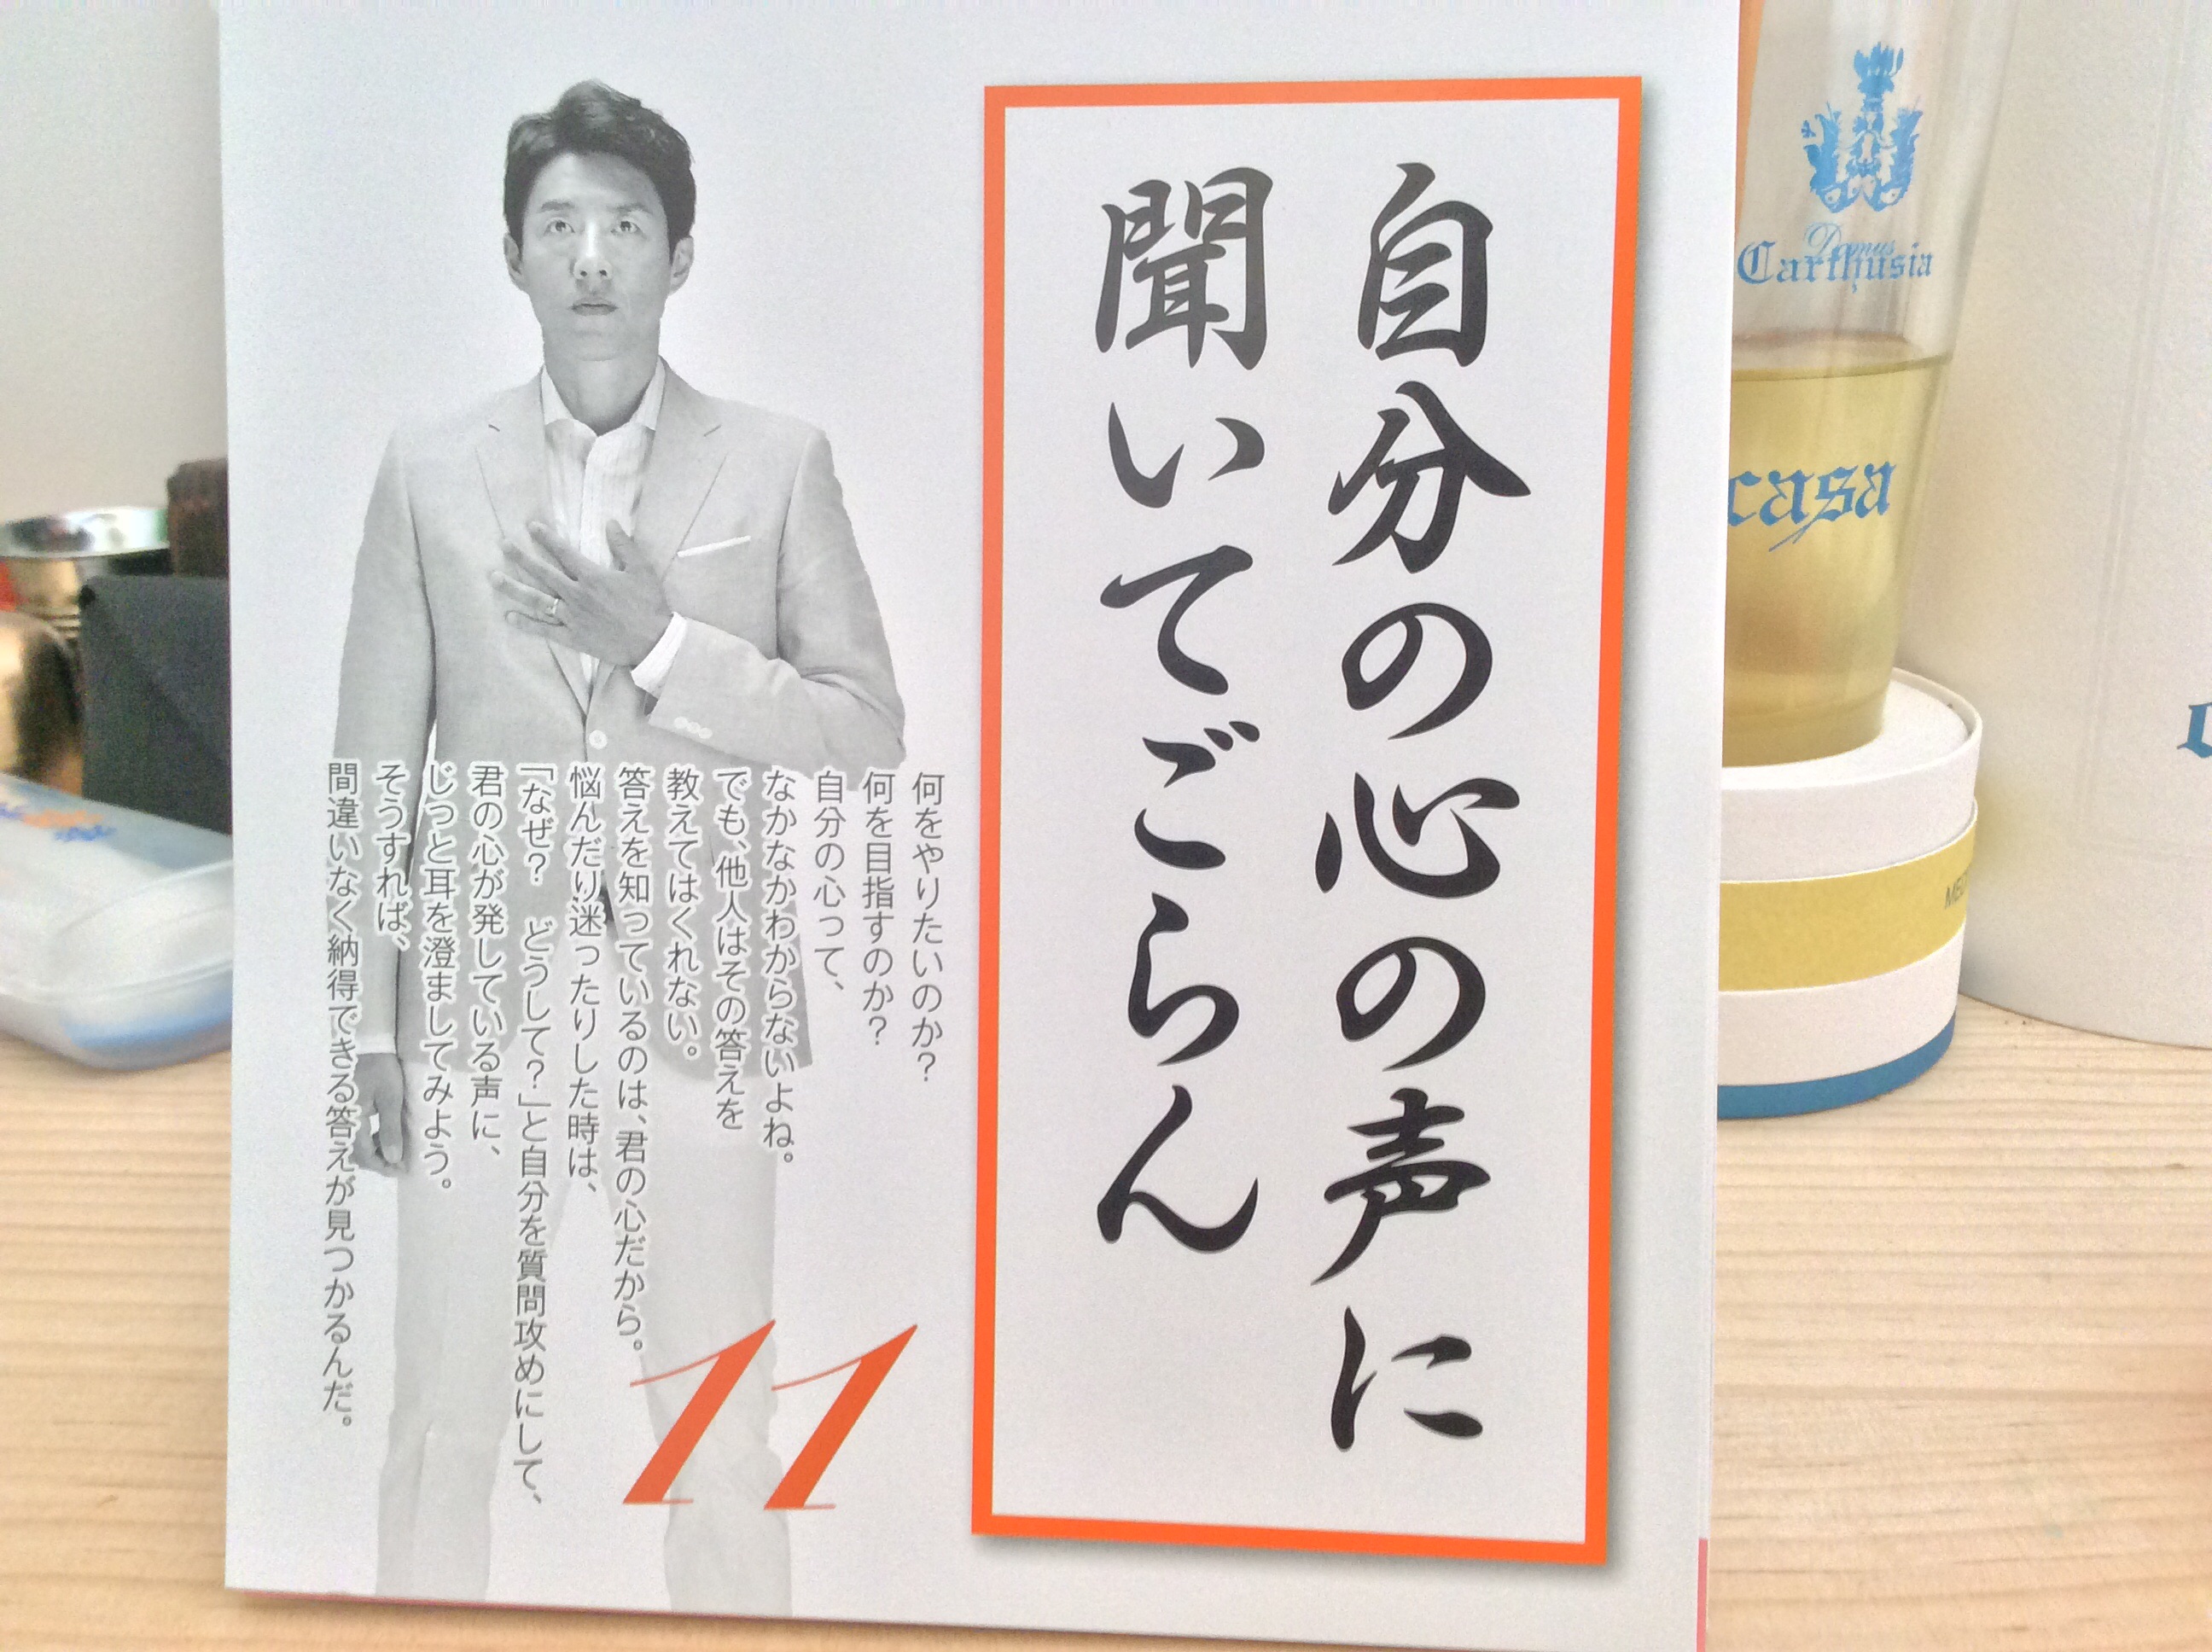 自分の心の声に
聞いてごらん
何をやりたいのか?
何を目指すのか?
自分の心って、
なかなかわからないよね。
でも、他人はその答えを
教えてはくれない。
答えを知っているのは、君の心だから。
悩んだり迷ったりした時は、
「なぜ? どうして?」と自分を質問攻めにして、
君の心が発している声に、
じっと耳を澄ましてみよう。
そうすれば、
間違いなく納得できる答えが見つかるんだ。
11
Domus
Carthusia
casa